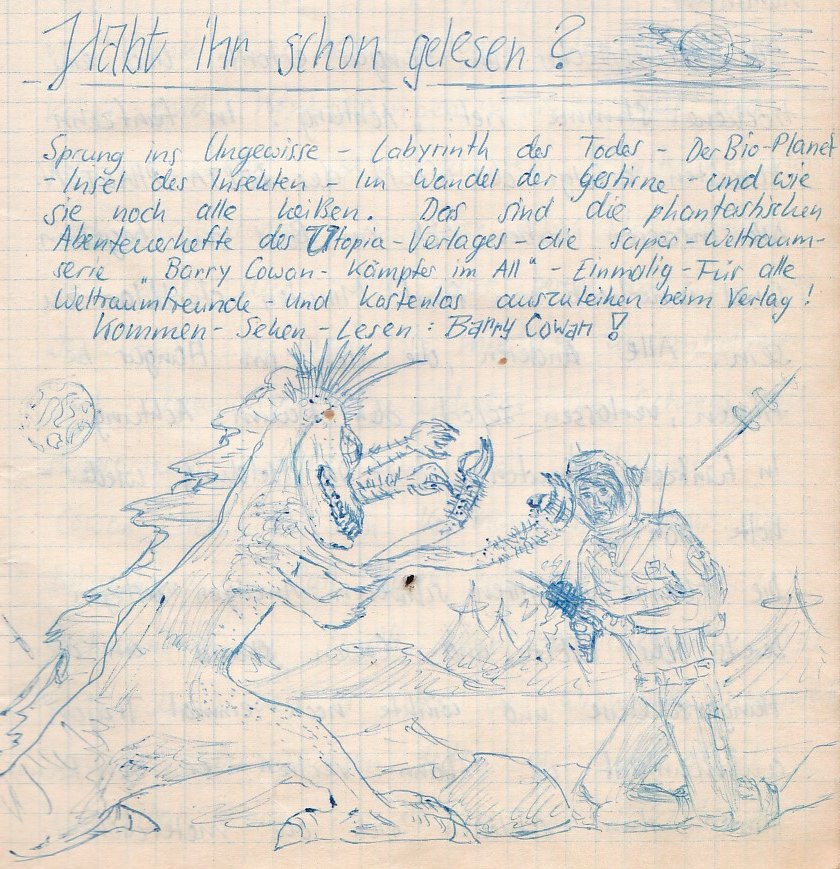 Habt ihr schon gelesen?
Sprung ins Ungewisse - Labyrinth des Todes - Der Bio-Planet
- Insel des Insekten - Im Wandel der Gestirne - und wie
sie noch alle heißen. Das sind die phantastischen
Abenteuerhefte des Utopia-Verlages - die Super-Weltraum-
serie „Barry Cowan - Kämpfer im All" - Einmalig - Für alle
Weltraumfreunde - und kostenlos auszuleihen beim Verlag!
Kommen - Sehen - Lesen: Barry Cowan!